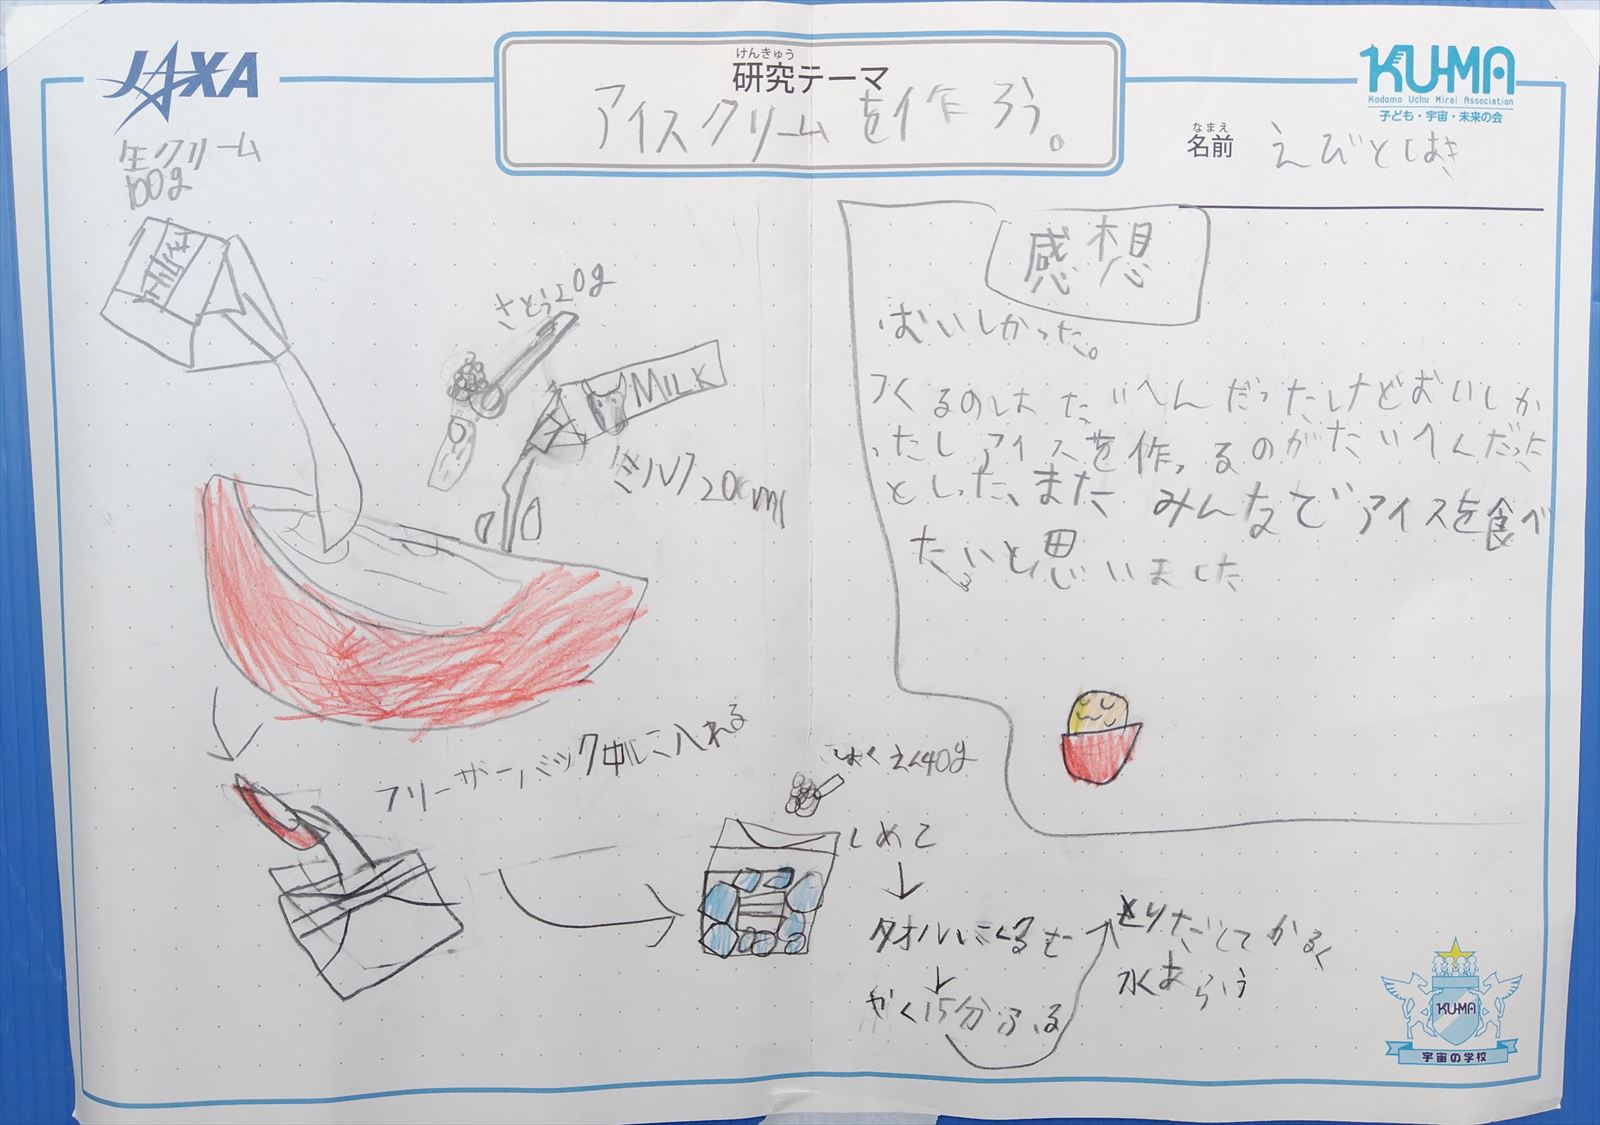 JAXA
けんきゅう
研究テーマ
アイスクリームを作ろう。
KU-MA
Kodomo Uchu Mirai Association
子ども・宇宙・未来の会
なまえ
名前
生クリーム
100g
さとう20g
MILK
ミルク200ml
フリーザーバック中に入れる
感想
おいしかった。
つくるのはたいへんだったけどおいしか
ったしアイスを作っるのがたいへんだった
としった、また みんなでアイスを食べ
たいと思いました
しょくえん40g
しめて
↓
タオルにくるむ
↓
やく15分ふる
とりだしてかるく
水あらう
KU-MA
宇宙の学校